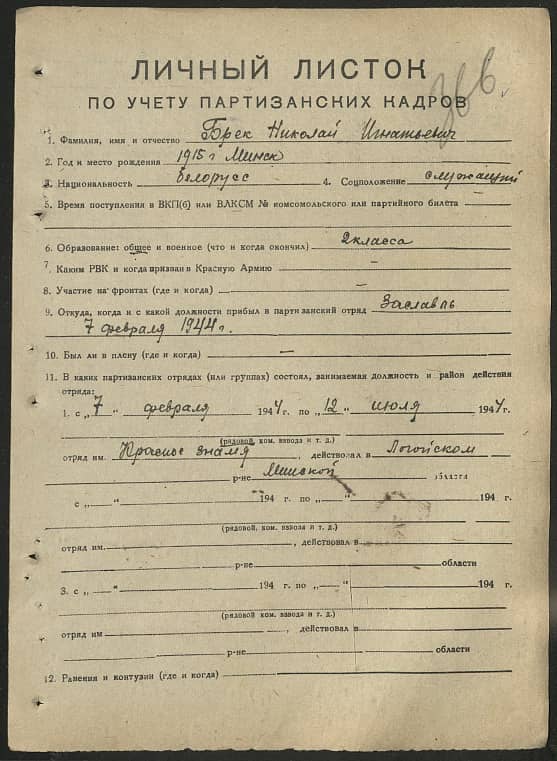 366.
ЛИЧНЫЙ ЛИСТОК
ПО УЧЕТУ ПАРТИЗАНСКИХ КАДРОВ
1. Фамилия, имя и отчество Брек Николай Игнатьевич
2. Год и место рождения 1915 г Минск
3. Национальность белорусс 4. Соцположение служащий
5. Время поступления в ВКП(б) или ВЛКСМ № комсомольского или партийного билета
6. Образование: общее и военное (что и когда окончил) 2 класса
7. Каким РВК и когда призван в Красную Армию —
8. Участие на фронтах (где и когда) —
9. Откуда, когда и с какой должности прибыл в партизанский отряд Заславль
7 февраля 1944 г.
10. Был ли в плену (где и когда) —
11. В каких партизанских отрядах (или группах) состоял, занимаемая должность и район действия
отряда:
1. с „ 7 “ февраля 194 4 г. по „ 12 “ июля 194 4 г.
(рядовой, ком. взвода и т. д.)
отряд им. Красное знамя, действовал в Логойском
р-не Минской области
с „ — “ 194 г. по „ — “ 194 г.
(рядовой, ком. взвода и т. д.)
отряд им. , действовал в
р-не области
3. с „ — “ 194 г. по „ — “ 194 г.
(рядовой, ком. взвода и т. д.)
отряд им , действовал в
р-не области
12. Ранения и контузии (где и когда)